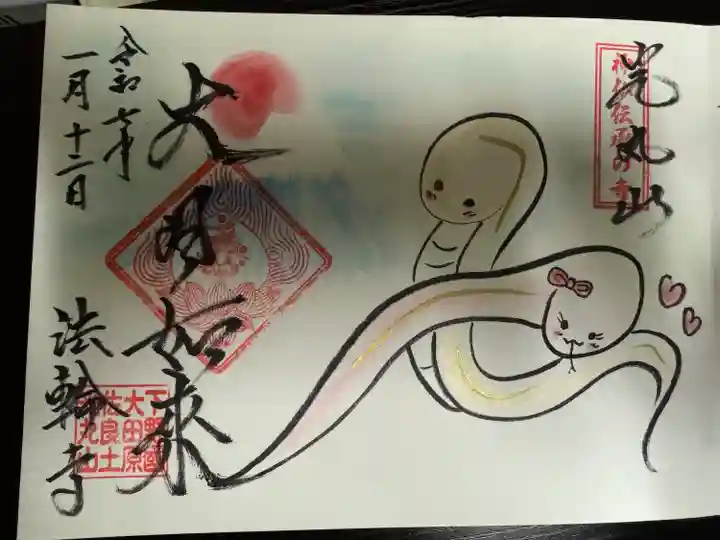 光丸山
神仏伝承の寺
大日如来
令和七年
一月十二日
法輪寺
下野國
大田原
佐良土
光丸山